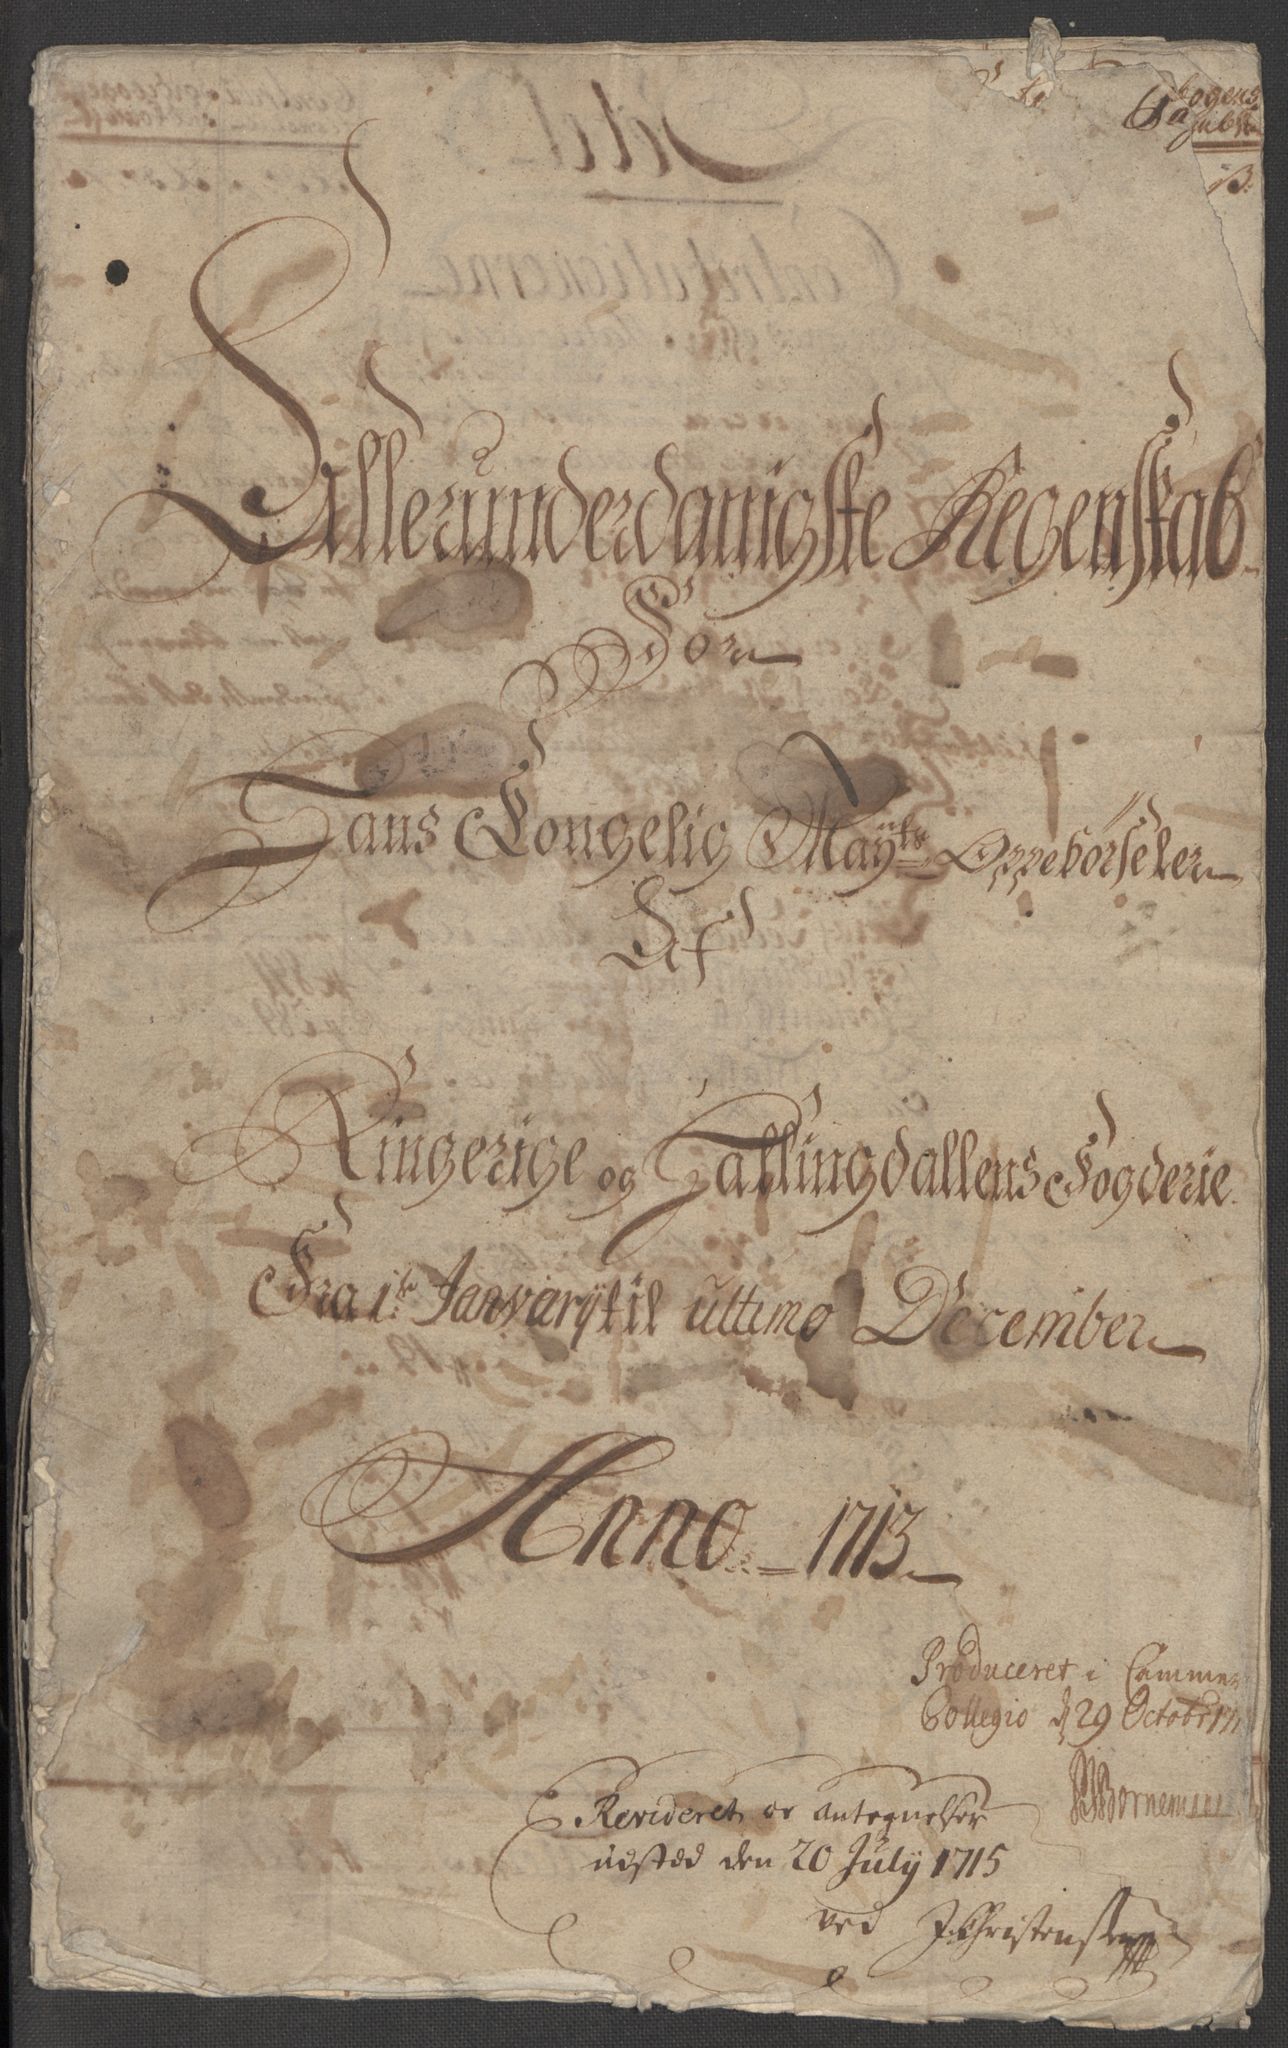 Allerunderdanigste Regenskab
For
Hans Kongelig Mayts Oppebørseler
Af
Ringerige og Hallingdallens Fogderie
Fra 1te Janvarij til ultimo December
Anno 1713
Produceret i Cammer
Collegio d 29 Octobr 171
Bornemann
Revideret oc antegnelser
udsted den 20 July 1715
ved J Christensen